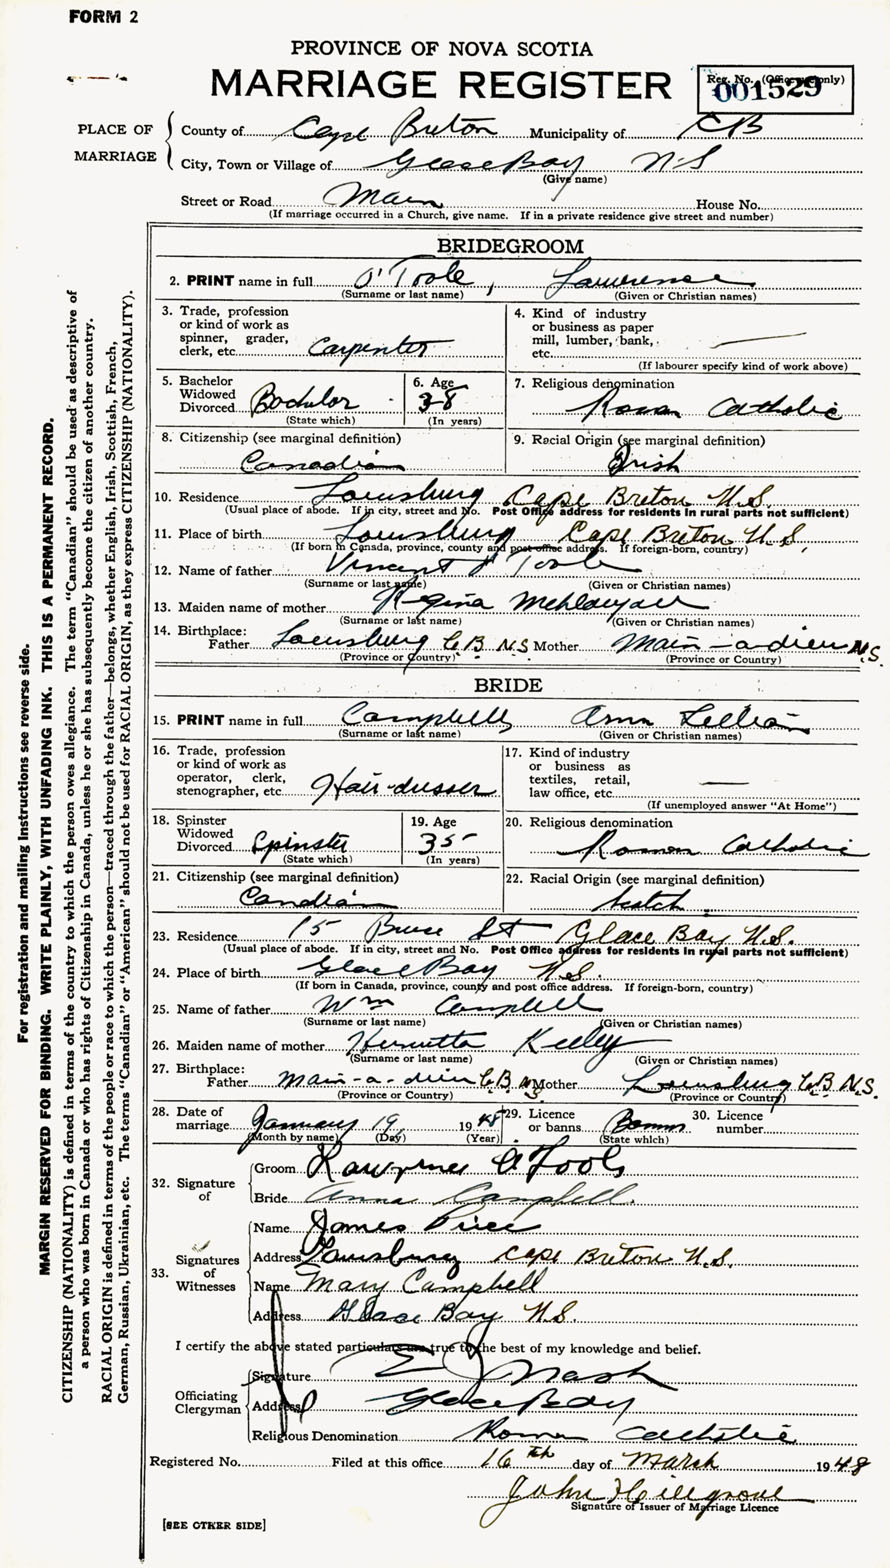 FORM 2
PROVINCE OF NOVA SCOTIA
MARRIAGE REGISTER
Reg. No. (Office use only)
001529
PLACE OF MARRIAGE
County of Cape Breton Municipality of CB
City, Town or Village of Glace Bay N.S
(Give name)
Street or Road Main House No.
(If marriage occurred in a Church, give name. If in a private residence give street and number)
BRIDEGROOM
2. PRINT name in full O'Toole, Lawrence
(Surname or last name) (Given or Christian names)
3. Trade, profession or kind of work as spinner, grader, clerk, etc. Carpenter
4. Kind of industry or business as paper mill, lumber, bank, etc. —
(If labourer specify kind of work above)
5. Bachelor Widowed Divorced Bachelor
(State which)
6. Age 38
(In years)
7. Religious denomination Roman Catholic
8. Citizenship (see marginal definition) Canadian
9. Racial Origin (see marginal definition) Irish
10. Residence Louisburg Cape Breton N.S.
(Usual place of abode. If in city, street and No. Post Office address for residents in rural parts not sufficient)
11. Place of birth Louisburg Cape Breton N.S.
(If born in Canada, province, county and post office address. If foreign-born, country)
12. Name of father Vincent O'Toole
(Surname or last name) (Given or Christian names)
13. Maiden name of mother Regina
(Surname or last name) (Given or Christian names)
14. Birthplace: Father Louisburg C.B. N.S Mother Main-a-dieu N.S.
(Province or Country) (Province or Country)
BRIDE
15. PRINT name in full Campbell, Ann Lillian
(Surname or last name) (Given or Christian names)
16. Trade, profession or kind of work as operator, clerk, stenographer, etc. Hair-dresser
17. Kind of industry or business as textiles, retail, law office, etc. —
(If unemployed answer "At Home")
18. Spinster Widowed Divorced Spinster
(State which)
19. Age 35
(In years)
20. Religious denomination Roman Catholic
21. Citizenship (see marginal definition) Candian
22. Racial Origin (see marginal definition) Scotch
23. Residence 15 Bruce St Glace Bay N.S.
(Usual place of abode. If in city, street and No. Post Office address for residents in rural parts not sufficient)
24. Place of birth Glace Bay N.S.
(If born in Canada, province, county and post office address. If foreign-born, country)
25. Name of father Wm Campbell
(Surname or last name) (Given or Christian names)
26. Maiden name of mother Henrietta Kelley
(Surname or last name) (Given or Christian names)
27. Birthplace: Father Main-a-dieu C.B. N.S Mother Louisburg C.B. N.S.
(Province or Country) (Province or Country)
28. Date of marriage January 19 1948
(Month by name) (Day) (Year)
29. Licence or banns Banns
(State which)
30. Licence number
32. Signature of
Groom Lawrence O'Toole
Bride Anna Campbell.
33. Signatures of Witnesses
Name James Price
Address Louisburg Cape Breton N.S.
Name Mary Campbell
Address Glace Bay N.S.
I certify the above stated particulars are true to the best of my knowledge and belief.
Officiating Clergyman
Signature E J Nash
Address Glace Bay
Religious Denomination Roman Catholic
Registered No. Filed at this office 16th day of March 1948
John Hillgrove
Signature of Issuer of Marriage Licence
[SEE OTHER SIDE]
For registration and mailing instructions see reverse side.
MARGIN RESERVED FOR BINDING. WRITE PLAINLY, WITH UNFADING INK. THIS IS A PERMANENT RECORD.
CITIZENSHIP (NATIONALITY) is defined in terms of the country to which the person owes allegiance. The term "Canadian" should be used as descriptive of
a person who was born in Canada or who has rights of Citizenship in Canada, unless he or she has subsequently become the citizen of another country.
RACIAL ORIGIN is defined in terms of the people or race to which the person—traced through the father—belongs, whether English, Irish, Scottish, French,
German, Russian, Ukrainian, etc. The terms "Canadian" or "American" should not be used for RACIAL ORIGIN, as they express CITIZENSHIP (NATIONALITY).